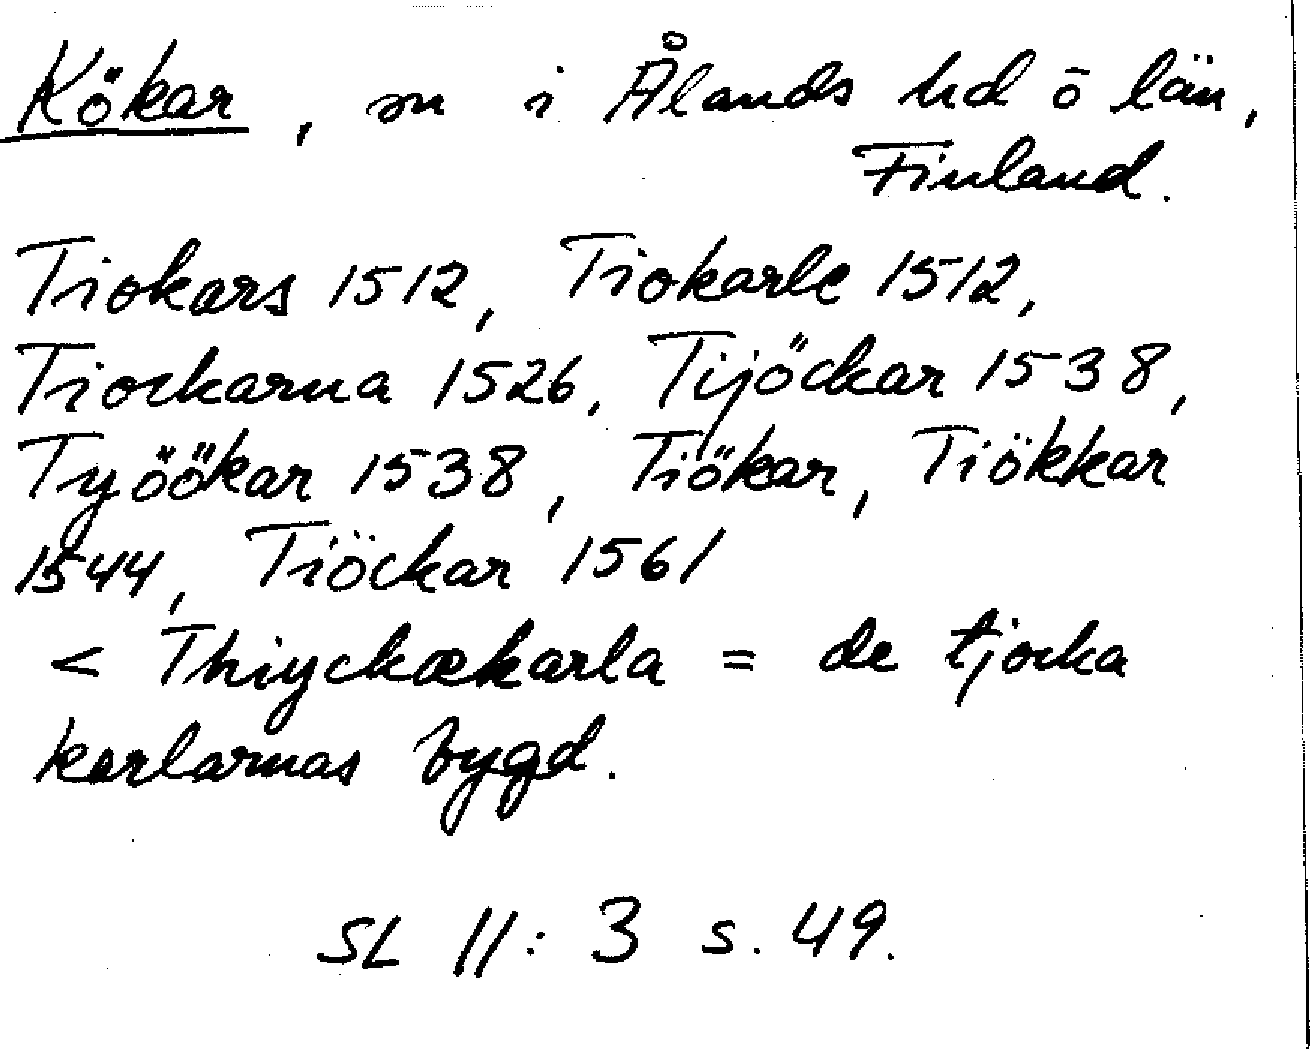 Kökar, sn i Ålands hd ō län,
Finland.
Tiokars 1512, Tiokarle 1512,
Tiockarna 1526, Tijöckar 1538,
Työökar 1538, Tiökar, Tiökkar
1544, Tiöckar 1561
< Thiyckækarla = de tjocka
karlarnas bygd.
SL 11:3 s. 49.